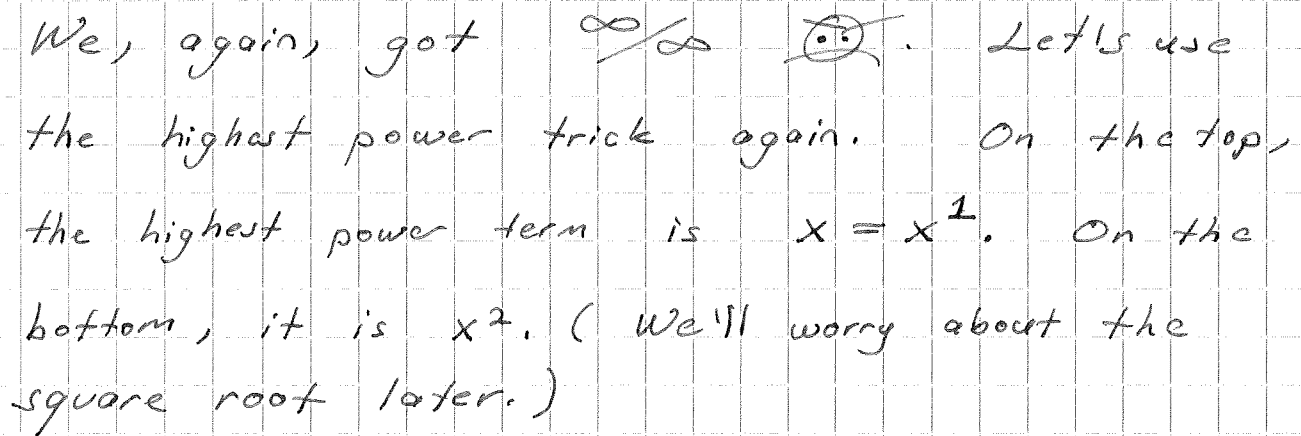 We, again, got ∞/∞ . Let's use
the highest power trick again. On the top,
the highest power term is x = x¹. On the
bottom, it is x². (We'll worry about the
square root later.)